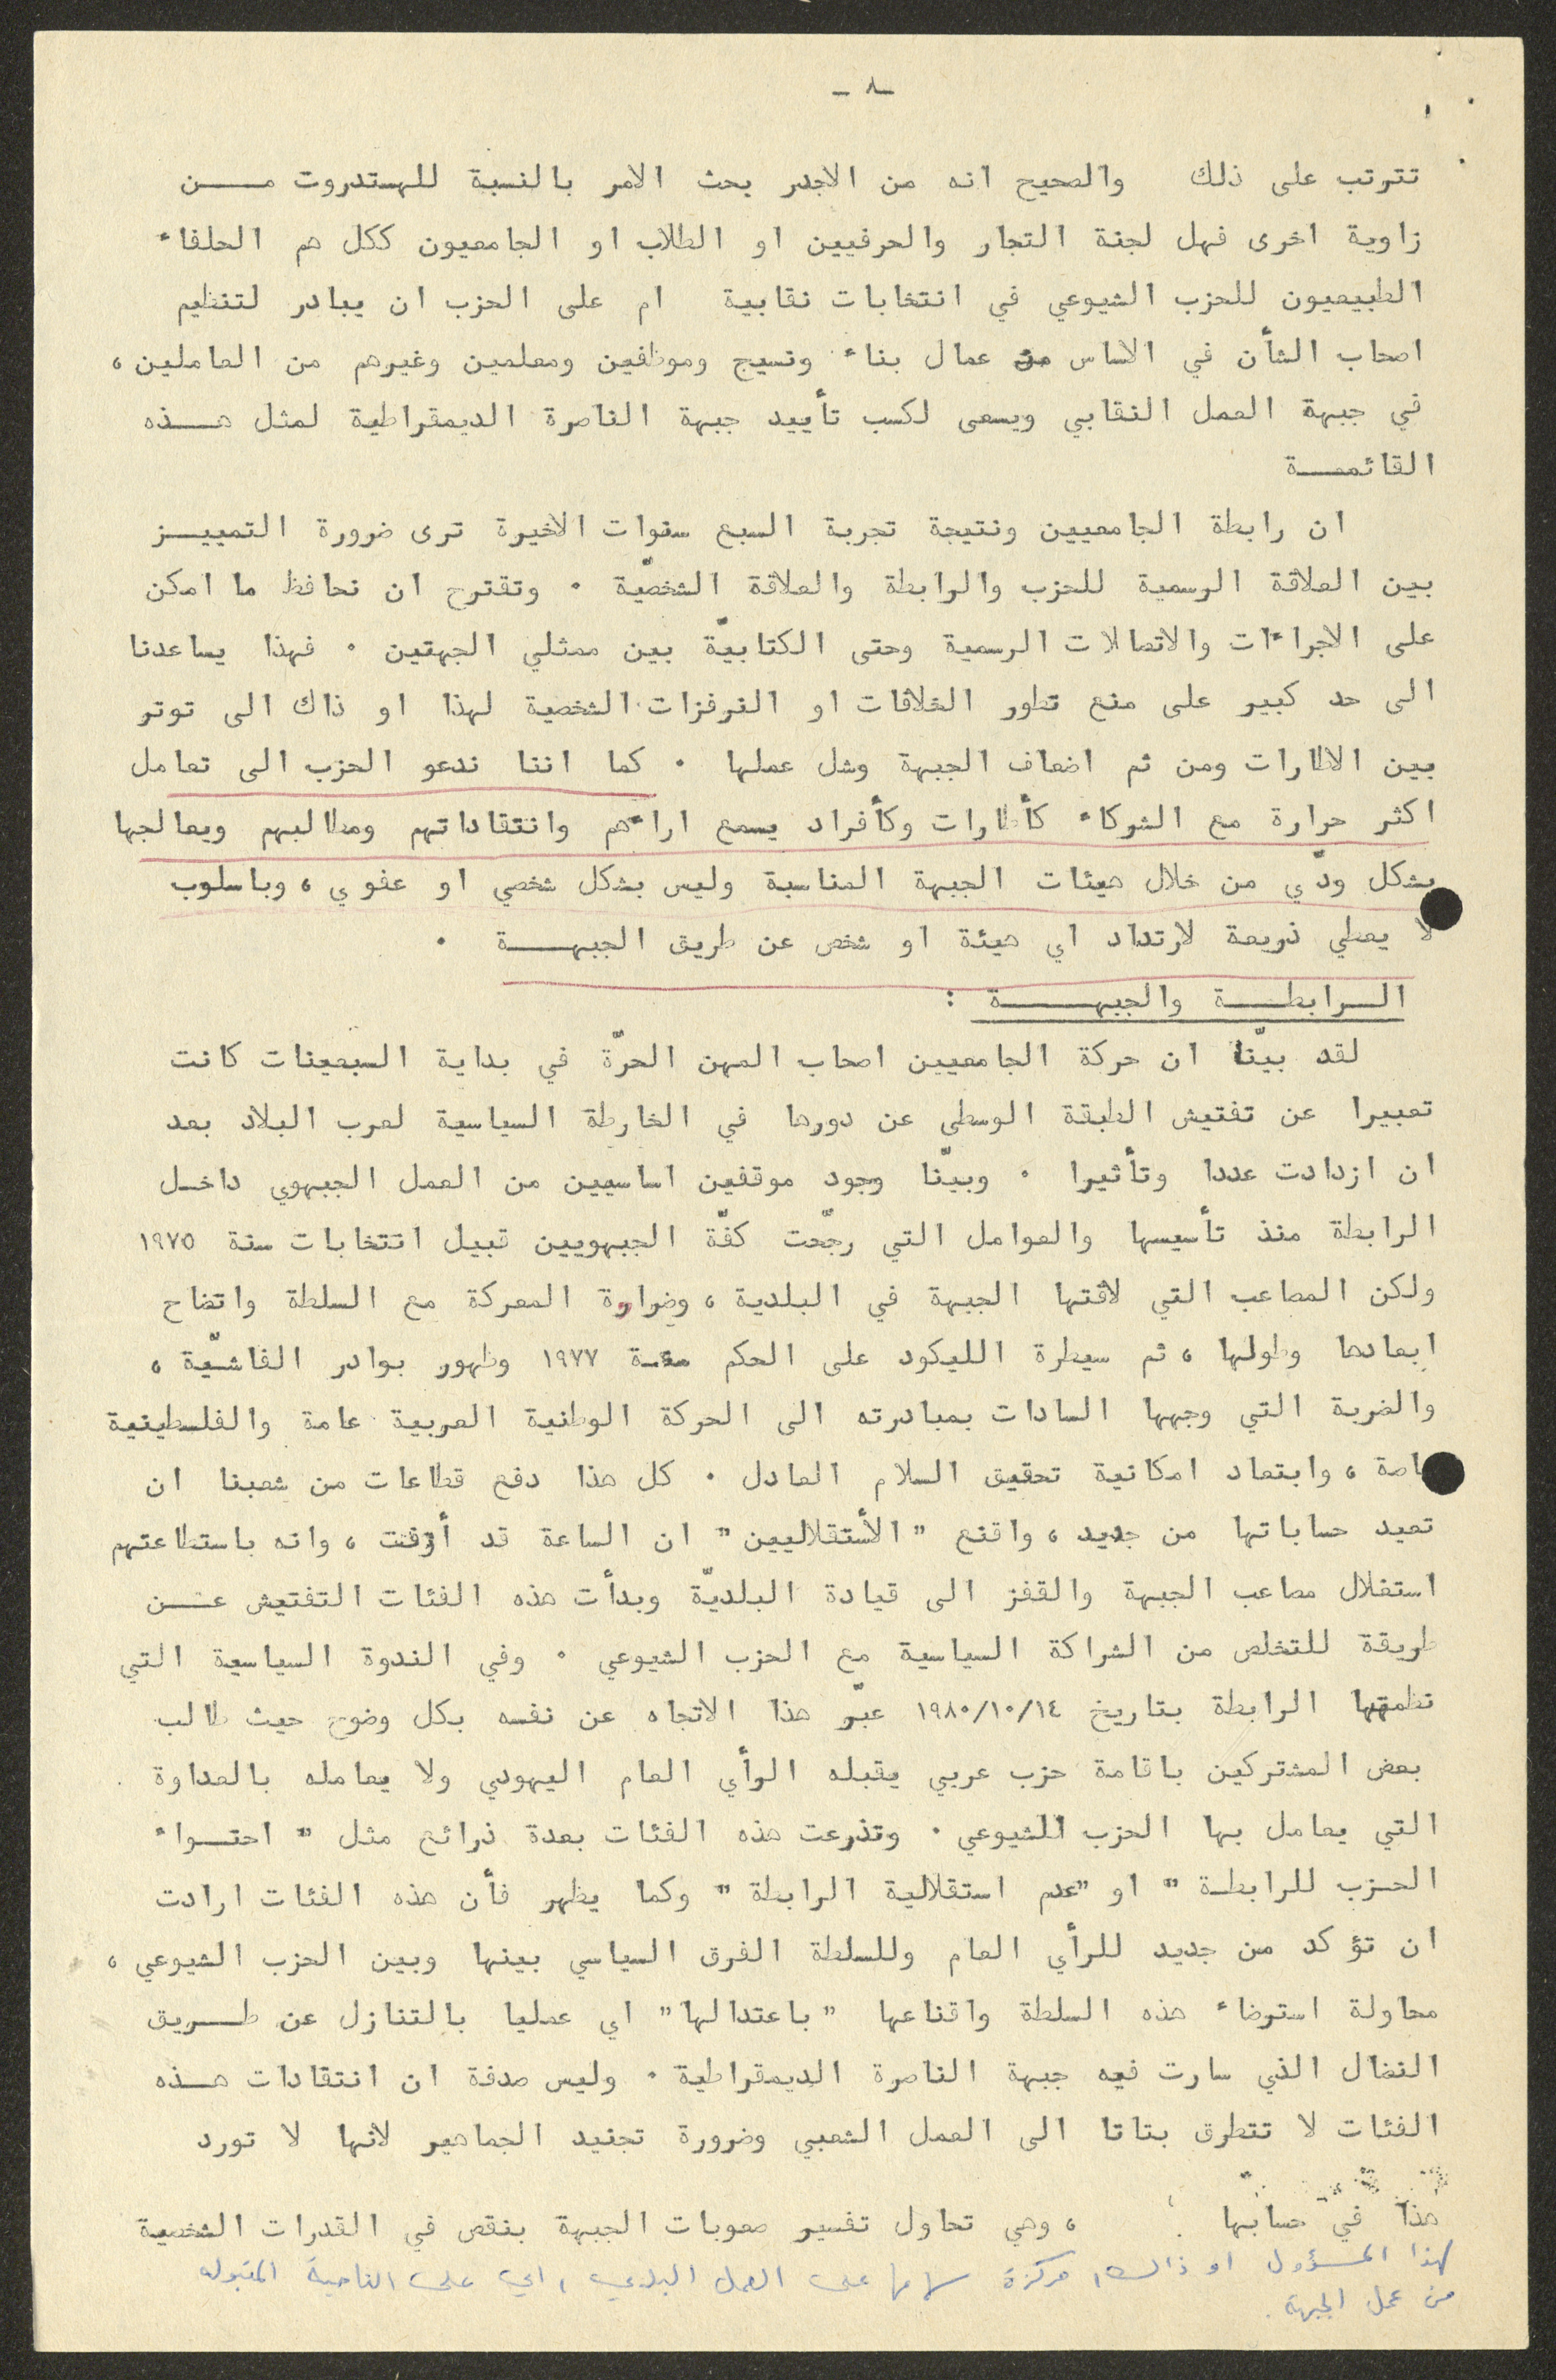 - ٨ -
تترتب على ذلك والصحيح انه من الاجدر بحث الامر بالنسبة للهستدروت من
زاوية اخرى فهل لجنة التجار والحرفيين او الطلاب او الجامعيون ككل هم الحلفاء
الطبيعيون للحزب الشيوعي في انتخابات نقابية ام على الحزب ان يبادر لتنظيم
اصحاب الشأن في الاساس من عمال بناء ونسيج وموظفين ومعلمين وغيرهم من العاملين،
في جبهة العمل النقابي ويسعى لكسب تأييد جبهة الناصرة الديمقراطية لمثل هذه
القائمة
ان رابطة الجامعيين ونتيجة تجربة السبع سنوات الاخيرة ترى ضرورة التمييز
بين العلاقة الرسمية للحزب والرابطة والعلاقة الشخصيّة . وتقترح ان نحافظ ما امكن
على الاجراءات والاتصالات الرسمية وحتى الكتابيّة بين ممثلي الجهتين . فهذا يساعدنا
الى حد كبير على منع تطور الخلافات او النرفزات الشخصية لهذا او ذاك الى توتر
بين الاطارات ومن ثم اضعاف الجبهة وشل عملها . كما اننا ندعو الحزب الى تعامل
اكثر حرارة مع الشركاء كأطارات وكأفراد يسمع اراءهم وانتقاداتهم ومطالبهم ويعالجها
بشكل ودّي من خلال هيئات الجبهة المناسبة وليس بشكل شخصي او عفوي، وباسلوب
لا يعطي ذريعة لارتداد اي هيئة او شخص عن طريق الجبهة .
الرابطة والجبهة :
لقد بيّنا ان حركة الجامعيين اصحاب المهن الحرّة في بداية السبعينات كانت
تعبيرا عن تفتيش الطبقة الوسطى عن دورها في الخارطة السياسية لعرب البلاد بعد
ان ازدادت عددا وتأثيرا . وبيّنا وجود موقفين اساسيين من العمل الجبهوي داخل
الرابطة منذ تأسيسها والعوامل التي رجّحت كفّة الجبهويين قبيل انتخابات سنة ١٩٧٥
ولكن المصاعب التي لاقتها الجبهة في البلدية، وضراوة المعركة مع السلطة واتضاح
ابعادها وطولها، ثم سيطرة الليكود على الحكم سنة ١٩٧٧ وظهور بوادر الفاشيّة،
والضربة التي وجهها السادات بمبادرته الى الحركة الوطنية العربية عامة والفلسطينية
اصة، وابتعاد امكانية تحقيق السلام العادل . كل هذا دفع قطاعات من شعبنا ان
تعيد حساباتها من جديد، واقنع "الأستقلاليين" ان الساعة قد أزفت، وانه باستطاعتهم
استغلال مصاعب الجبهة والقفز الى قيادة البلديّة وبدأت هذه الفئات التفتيش عن
طريقة للتخلص من الشراكة السياسية مع الحزب الشيوعي . وفي الندوة السياسية التي
نظمتها الرابطة بتاريخ ١٩٨٠/١٠/١٤ عبّر هذا الاتجاه عن نفسه بكل وضوح حيث طالب
بعض المشتركين باقامة حزب عربي يقبله الرأي العام اليهودي ولا يعامله بالعداوة
التي يعامل بها الحزب الشيوعي . وتذرعت هذه الفئات بعدة ذرائع مثل " احتواء
الحزب للرابطة " او "عدم استقلالية الرابطة " وكما يظهر فأن هذه الفئات ارادت
ان تؤكد من جديد للرأي العام وللسلطة الفرق السياسي بينها وبين الحزب الشيوعي،
محاولة استرضاء هذه السلطة واقناعها "باعتدالها" اي عمليا بالتنازل عن طريق
النضال الذي سارت فيه جبهة الناصرة الديمقراطية . وليس صدفة ان انتقادات هذه
الفئات لا تتطرق بتاتا الى العمل الشعبي وضرورة تجنيد الجماهير لأنها لا تورد
هذا في حسابها ، وهي تحاول تفسير صعوبات الجبهة بنقص في القدرات الشخصية
لهذا المسؤول او ذاك، مركزة سهامها على العمل البلدي، اي على الناحية المقبوله
من عمل الجبهة.